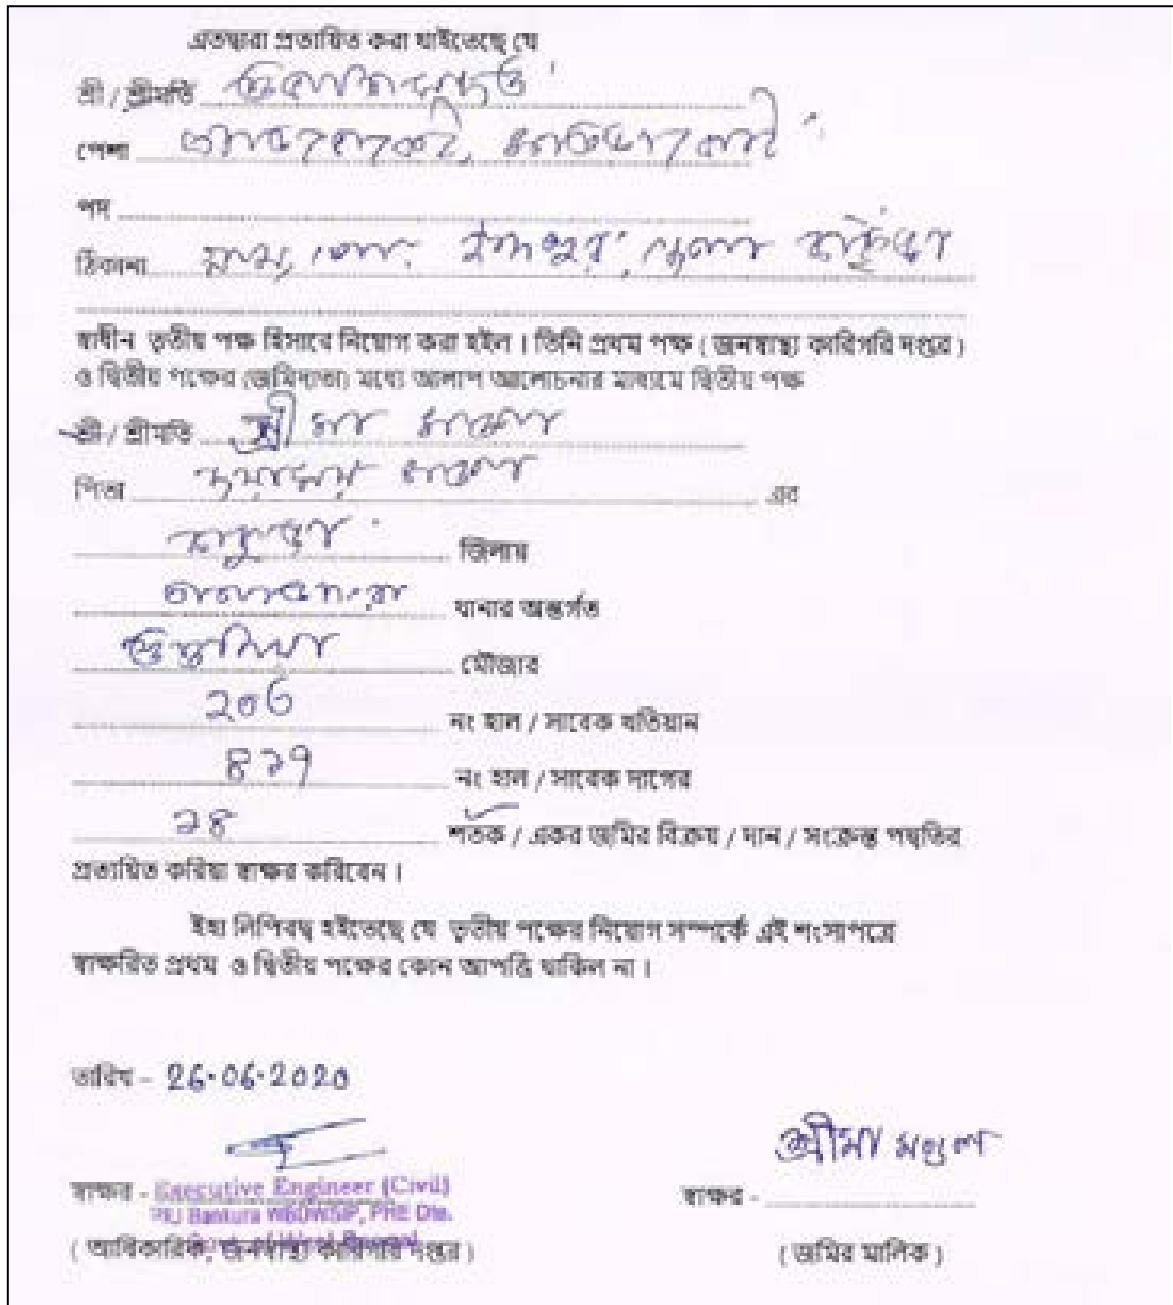 এতদ্বারা প্রত্যয়িত করা যাইতেছে যে
শ্রী / শ্রীমতি
পেশা
পদ
ঠিকানা গ্রাম, পোঃ ইন্দপুর, জেলা বাঁকুড়া
স্বাধীন তৃতীয় পক্ষ হিসাবে নিয়োগ করা হইল । তিনি প্রথম পক্ষ ( জনস্বাস্থ্য কারিগরি দপ্তর )
ও দ্বিতীয় পক্ষের (জমিদাতা) মধ্যে আলাপ আলোচনার মাধ্যমে দ্বিতীয় পক্ষ
শ্রী / শ্রীমতি মণ্ডল
পিতা মণ্ডল এর
বাঁকুড়া জিলায়
থানার অন্তর্গত
মৌজার
২০৬ নং হাল / সাবেক খতিয়ান
৪২৭ নং হাল / সাবেক দাগের
২৪ শতক / একর জমির বিক্রয় / দান / সংক্রান্ত পদ্ধতির
প্রত্যয়িত করিয়া স্বাক্ষর করিবেন ।
ইহা লিপিবদ্ধ হইতেছে যে তৃতীয় পক্ষের নিয়োগ সম্পর্কে এই শংসাপত্রে
স্বাক্ষরিত প্রথম ও দ্বিতীয় পক্ষের কোন আপত্তি থাকিল না ।
তারিখ - 26.06.2020
মণ্ডল
স্বাক্ষর - Executive Engineer (Civil)
PIU Bankura WBDWSIP, PHE Dte.
Govt. of West Bengal
স্বাক্ষর -
( আধিকারিক, জনস্বাস্থ্য কারিগরি দপ্তর )
( জমির মালিক )